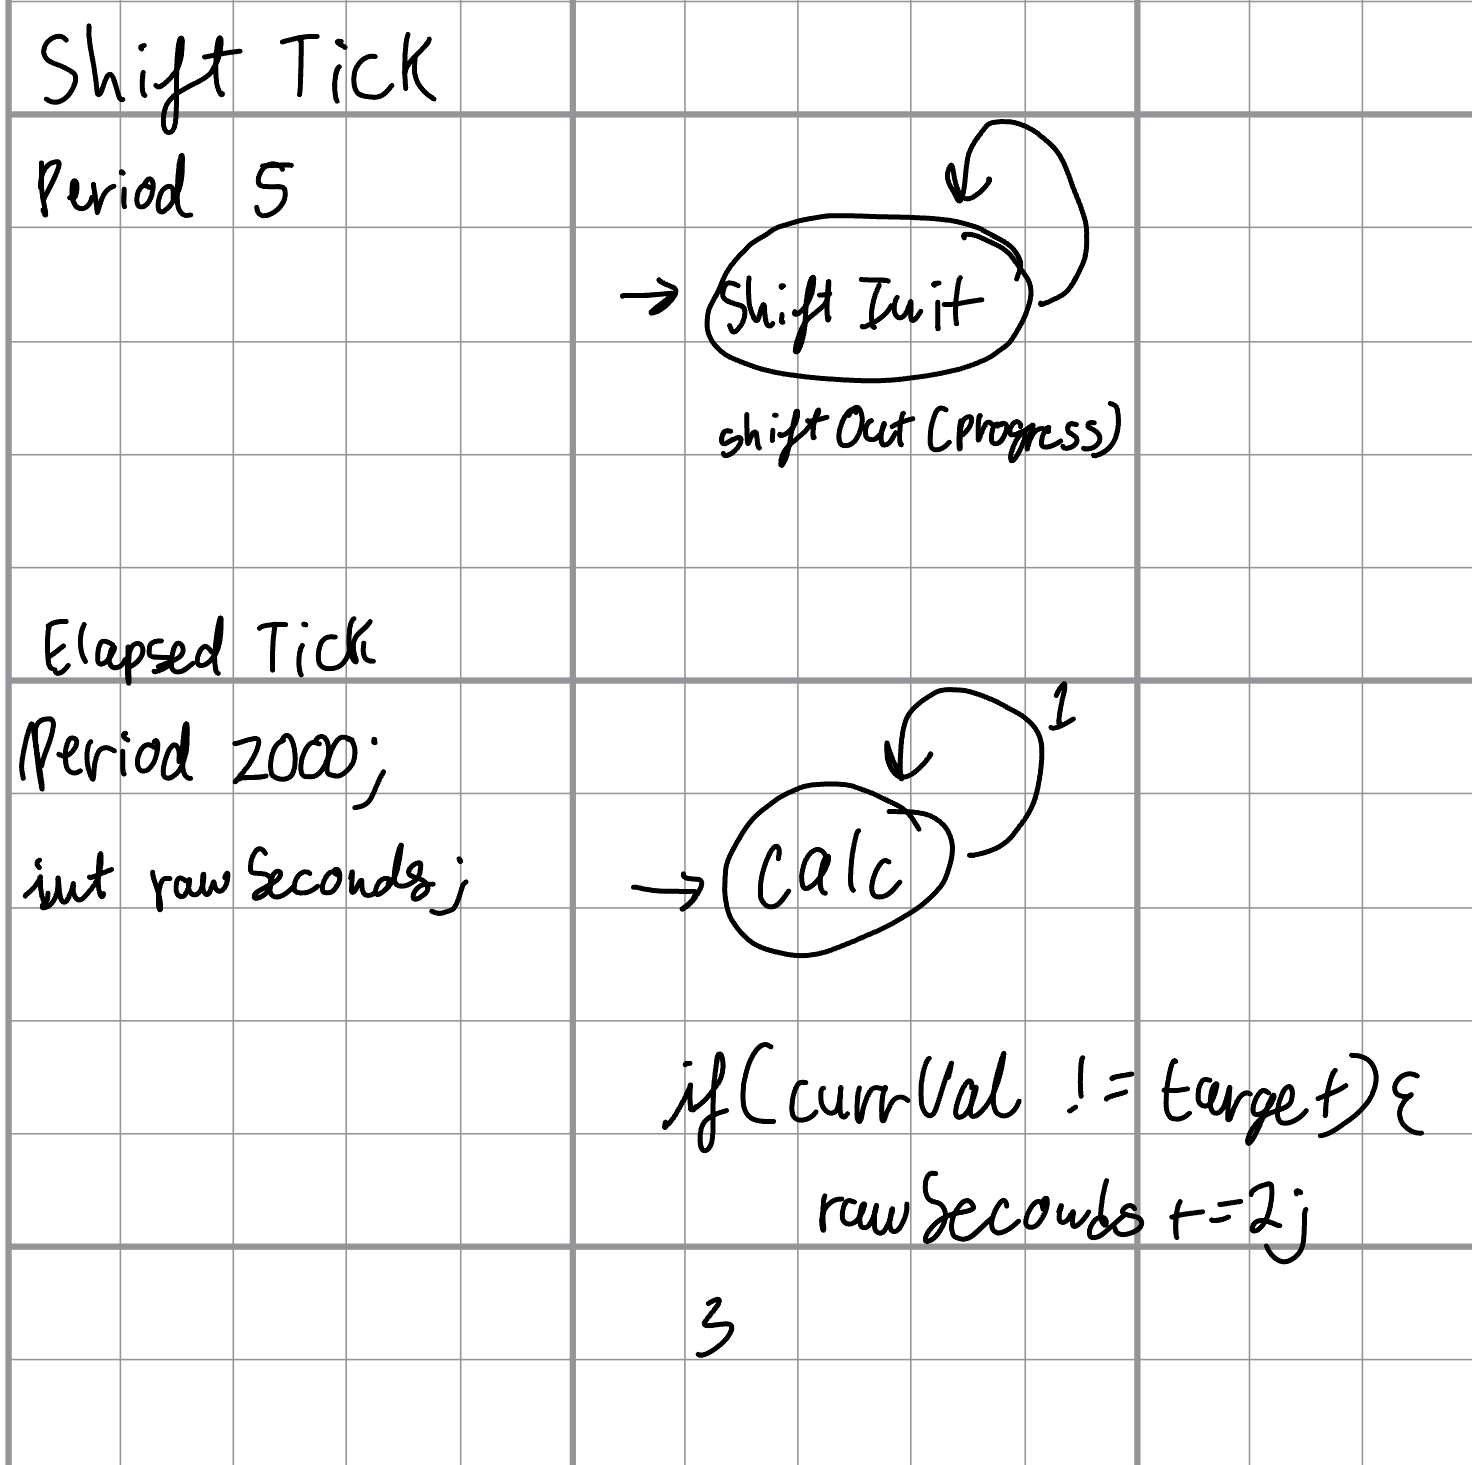 Shift Tick
Period 5
Shift Init
shiftOut(progress)
Elapsed Tick
Period 2000;
1
int rawSeconds;
Calc
if(currVal != target){
rawSeconds +=2;
}